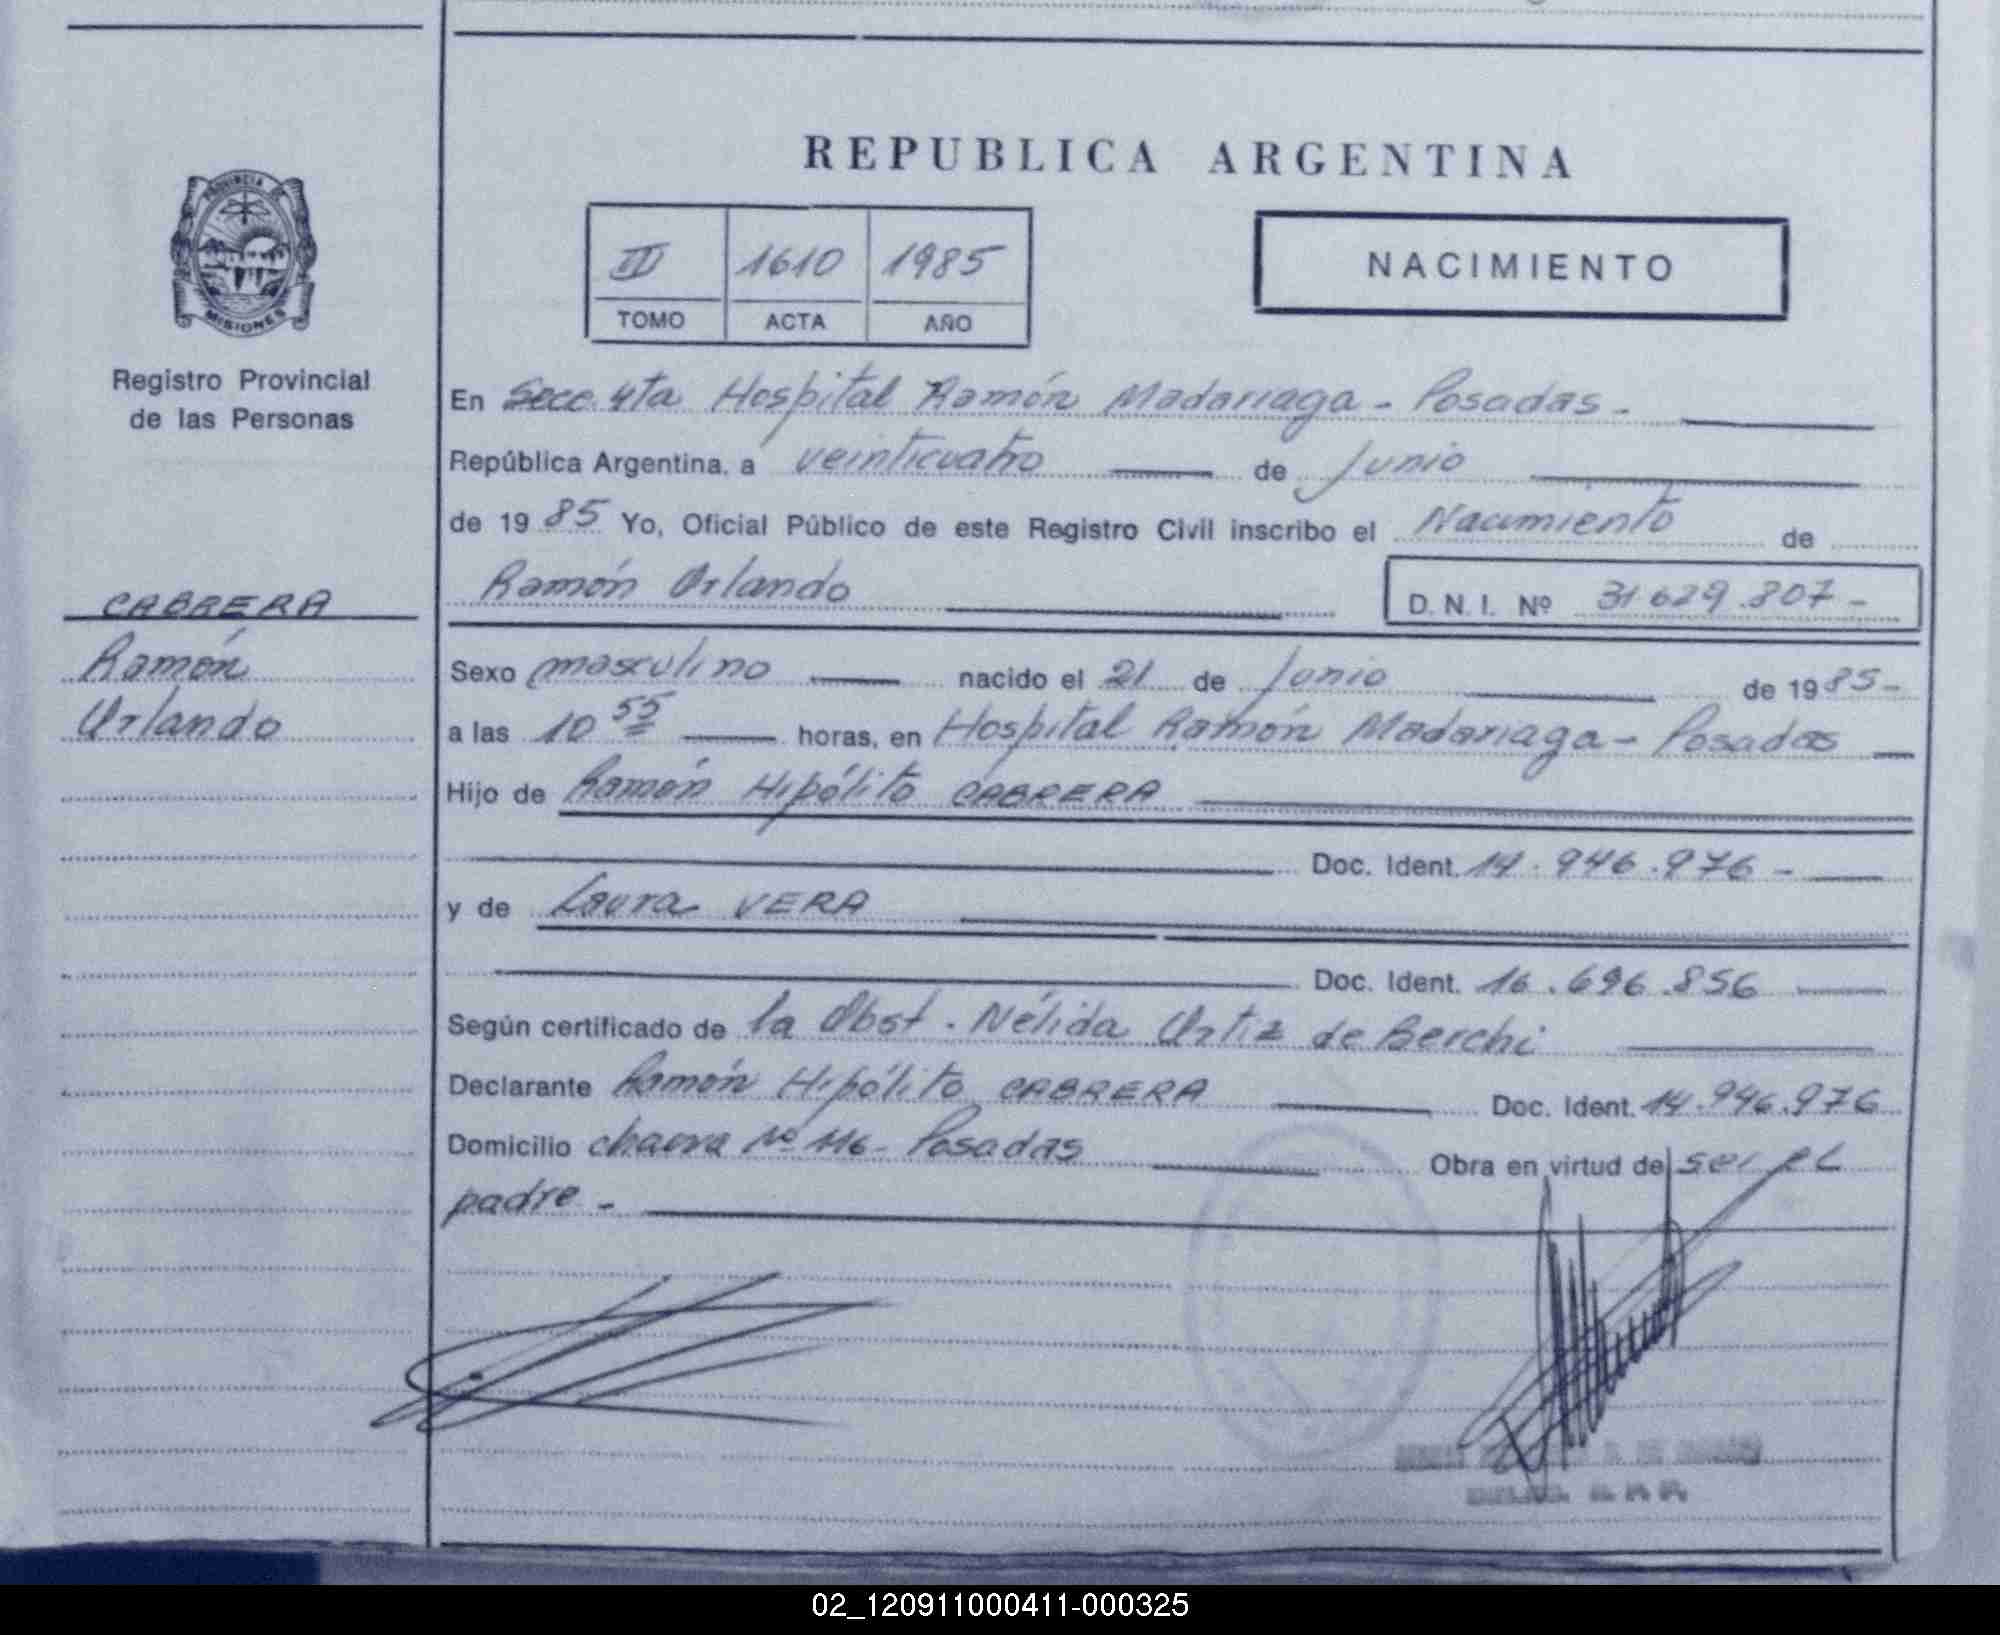 REPUBLICA ARGENTINA
PROVINCIA DE
MISIONES
Registro Provincial
de las Personas
III 1610 1985
TOMO ACTA AÑO
NACIMIENTO
CABRERA
Ramón
Orlando
En Secc. 4ta Hospital Ramón Madariaga - Posadas -
República Argentina, a veinticuatro de Junio
de 1985 Yo, Oficial Público de este Registro Civil inscribo el Nacimiento de
Ramón Orlando D. N. I. Nº 31.629.807 -
Sexo masculino nacido el 21 de Junio de 1985 -
a las 10 55 horas, en Hospital Ramón Madariaga - Posadas
Hijo de Ramón Hipólito CABRERA
Doc. Ident. 14.946.976 -
y de Laura VERA
Doc. Ident. 16.696.856
Según certificado de la Obst. Nélida Ortiz de Berchi
Declarante Ramón Hipólito CABRERA Doc. Ident. 14.946.976
Domicilio chacra Nº 116 - Posadas Obra en virtud de ser el
padre -
02_120911000411-000325